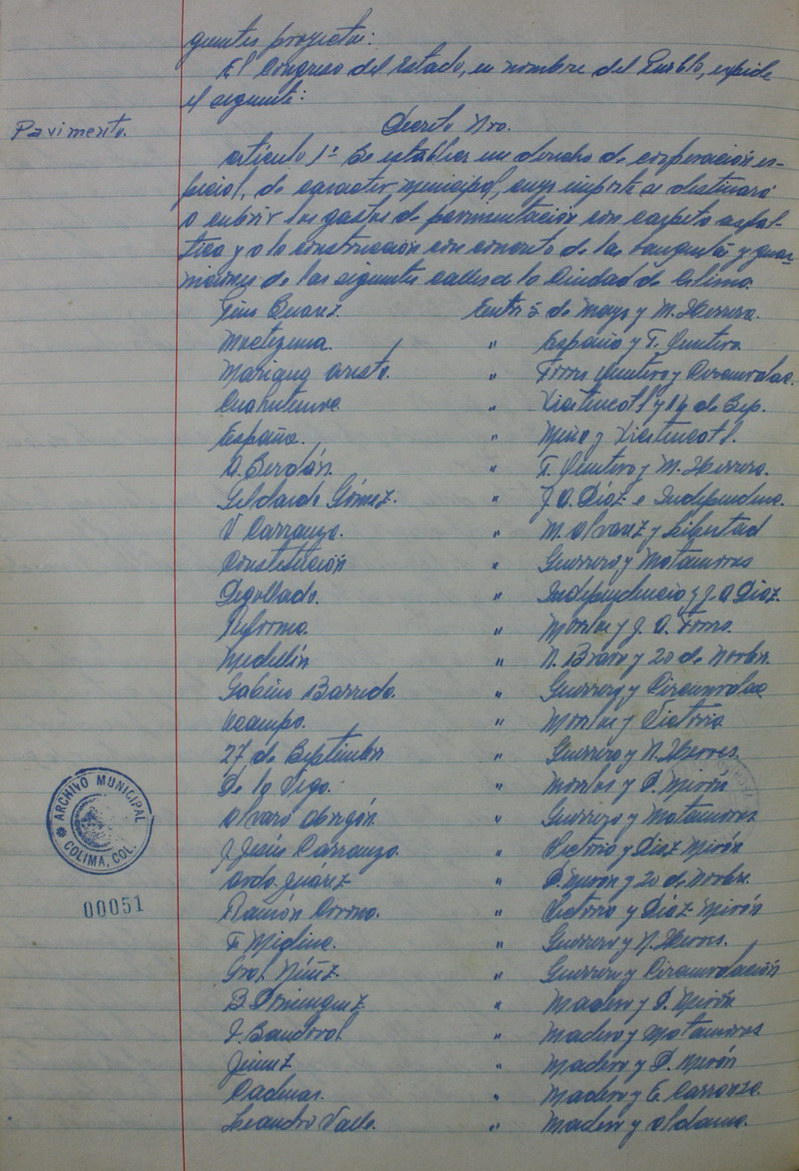 guientes proyectos:
El Congreso del Estado, en nombre del Pueblo, expide
el siguiente:
Pavimento.
Decreto Nro.
Artículo 1º Se establece un derecho de cooperación es-
pecial, de caracter municipal, cuyo importe se destinará
a cubrir los gastos de pavimentación con carpeta asfal-
tica y a la construcción con concreto de las banquetas y guar-
niciones de las siguientes calles de la Ciudad de Colima.
Entre 5 de Mayo y M. Herrera.
Moctezuma. " España y T. Quintero
Mariano Arista. " Torres Quintero y Circunvalac.
" Xicotencatl y 16 de Sep.
España. " y Xicotencatl.
A. Cerdán. " T. Quintero y M. Herrera.
Gildardo Gómez. " J. A. Díaz e Independenc.
V Carranza. " M. Alvarez y Libertad
Constitución " Guerrero y Matamoros
Degollado. " Independencia y J. A Díaz.
Reforma. " Morelos y J. A. Torres.
Medellín " N. Bravo y 20 de Novbre.
Gabino Barreda. " Guerrero y Circunvalac
Ocampo. " Morelos y Victoria
27 de Septiembre " Guerrero y N. Heroes.
De la Vega. " Morelos y D. Mirón
Alvaro Obregón. " Guerrero y Matamoros
J. Jesús Carranza. " Victoria y Diaz Mirón
Juárez " D. Mirón y 20 de Novbre.
Ramón Corona. " Victoria y Díaz Mirón
" Guerrero y N. Heroes.
Gral. Núñez. " Guerrero y Circunvalación
B. Dominguez " Madero y D. Mirón
Sandoval. " Madero y Matamoros
" Madero y D. Mirón
Cadenas. " Madero y E. Carranza.
Leandro Valle. " Madero y Aldama.
ARCHIVO MUNICIPAL
COLIMA, COL.
00051